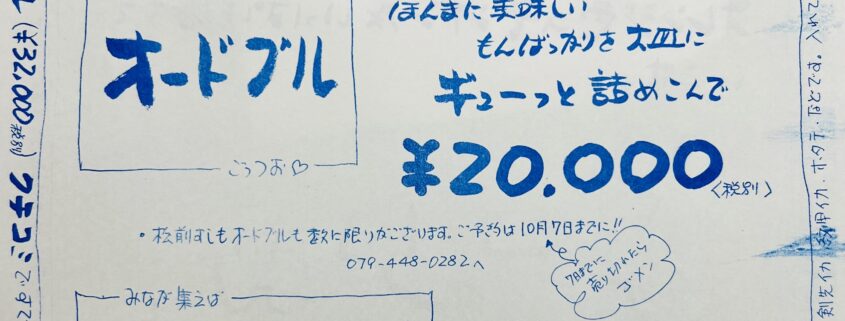 ほんまに美味しい
もんばっかりを大皿に
ギューっと詰めこんで
¥20.000〈税別〉
オードブル
ごっつお♡
・松前すしもオードブルも数に限りがございます。ご予約は10月7日までに!!
079-448-0282へ
7日までに
売り切れたら
ゴメン
みなが集えば
(¥32,000税別) クチコミですて
剣先イカ、紋甲イカ、ホタテ、などです。入れて